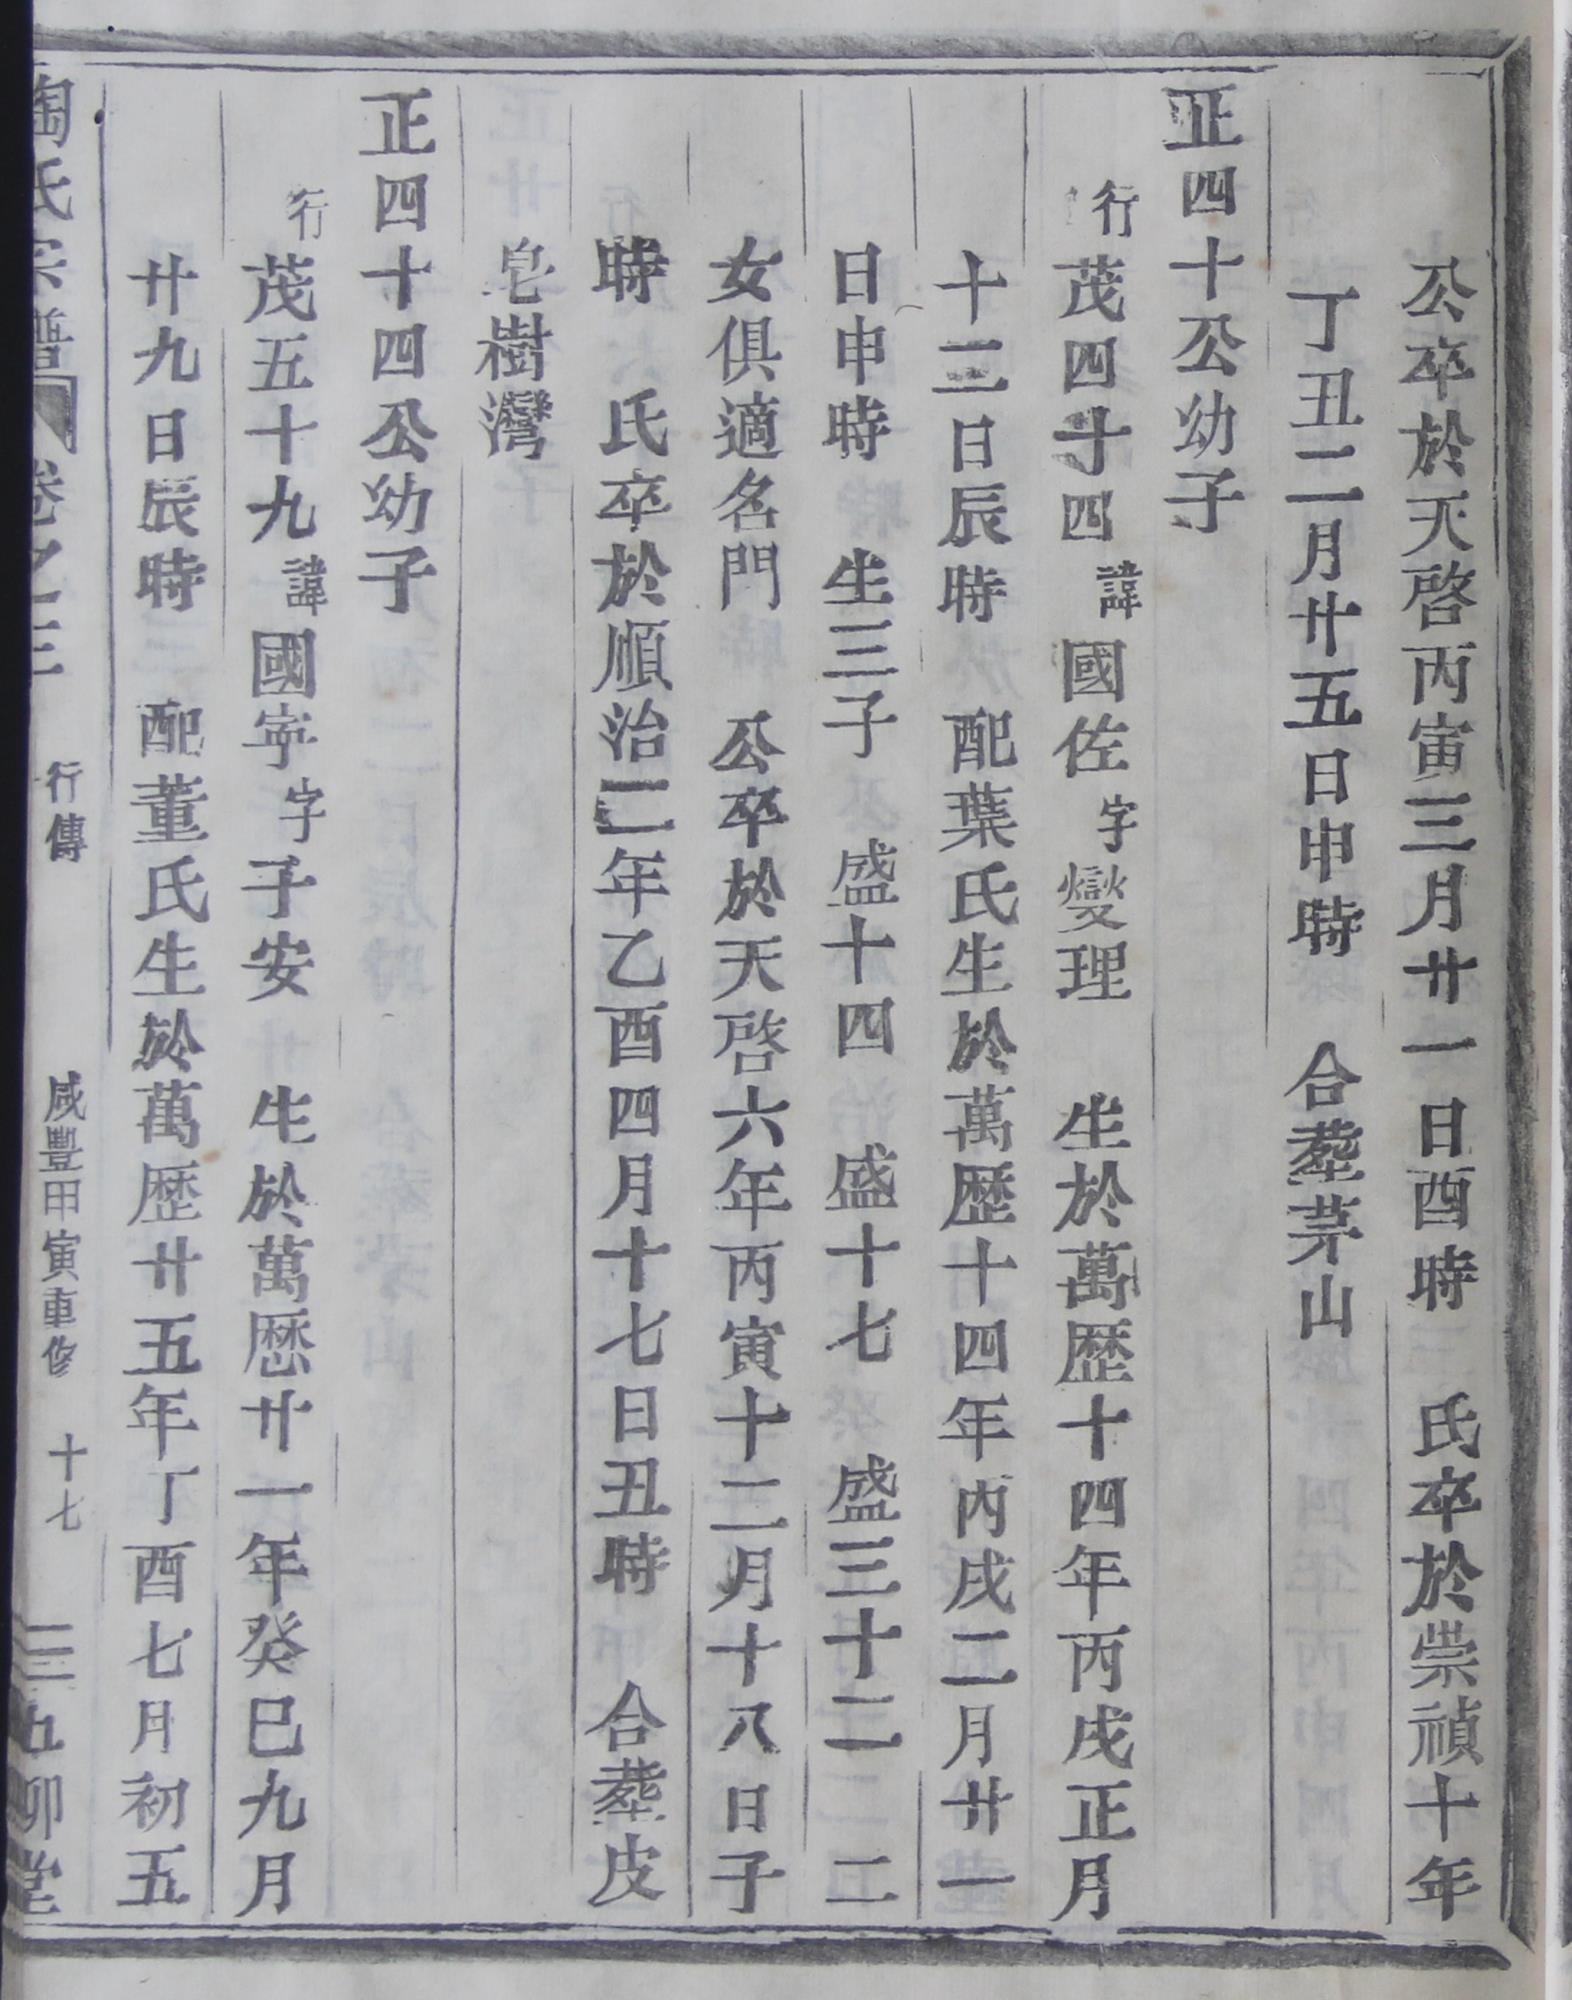 公卒於天啓丙寅三月廿一日酉時　氏卒於崇禎十年
丁丑二月廿五日申時　合塟茅山
正四十公幼子
行茂四十四諱國佐字燮理　生於萬歷十四年丙戌正月
十三日辰時　配葉氏生於萬歷十四年丙戌二月廿一
日申時　生三子　盛十四　盛十七　盛三十二　二
女俱適名門　公卒於天啓六年丙寅十二月十八日子
時　氏卒於順治二年乙酉四月十七日丑時　合塟皮
皂樹灣
正四十四公幼子
行茂五十九諱國寧字子安　生於萬厯廿一年癸巳九月
廿九日辰時　配董氏生於萬歷廿五年丁酉七月初五
陶氏宗譜　卷之三　行傳　咸豐甲寅重修　十七　五柳堂